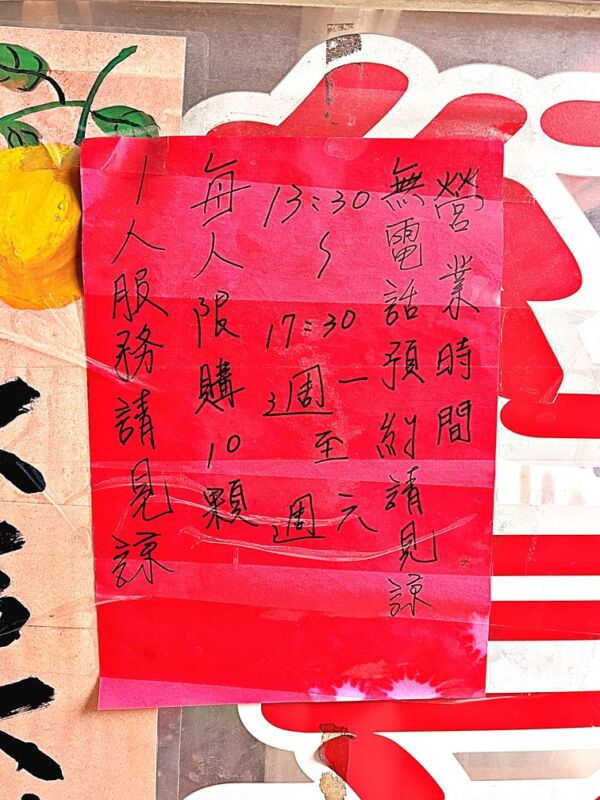 營業時間
無電話預約請見諒
13:30
~
17:30
週一
至
週
每人限購10顆
1人服務請見諒